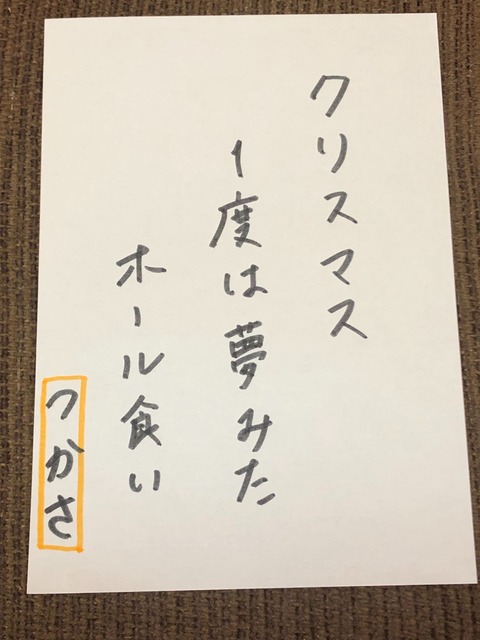 クリスマス
1度は夢みた
ホール食い
つかさ